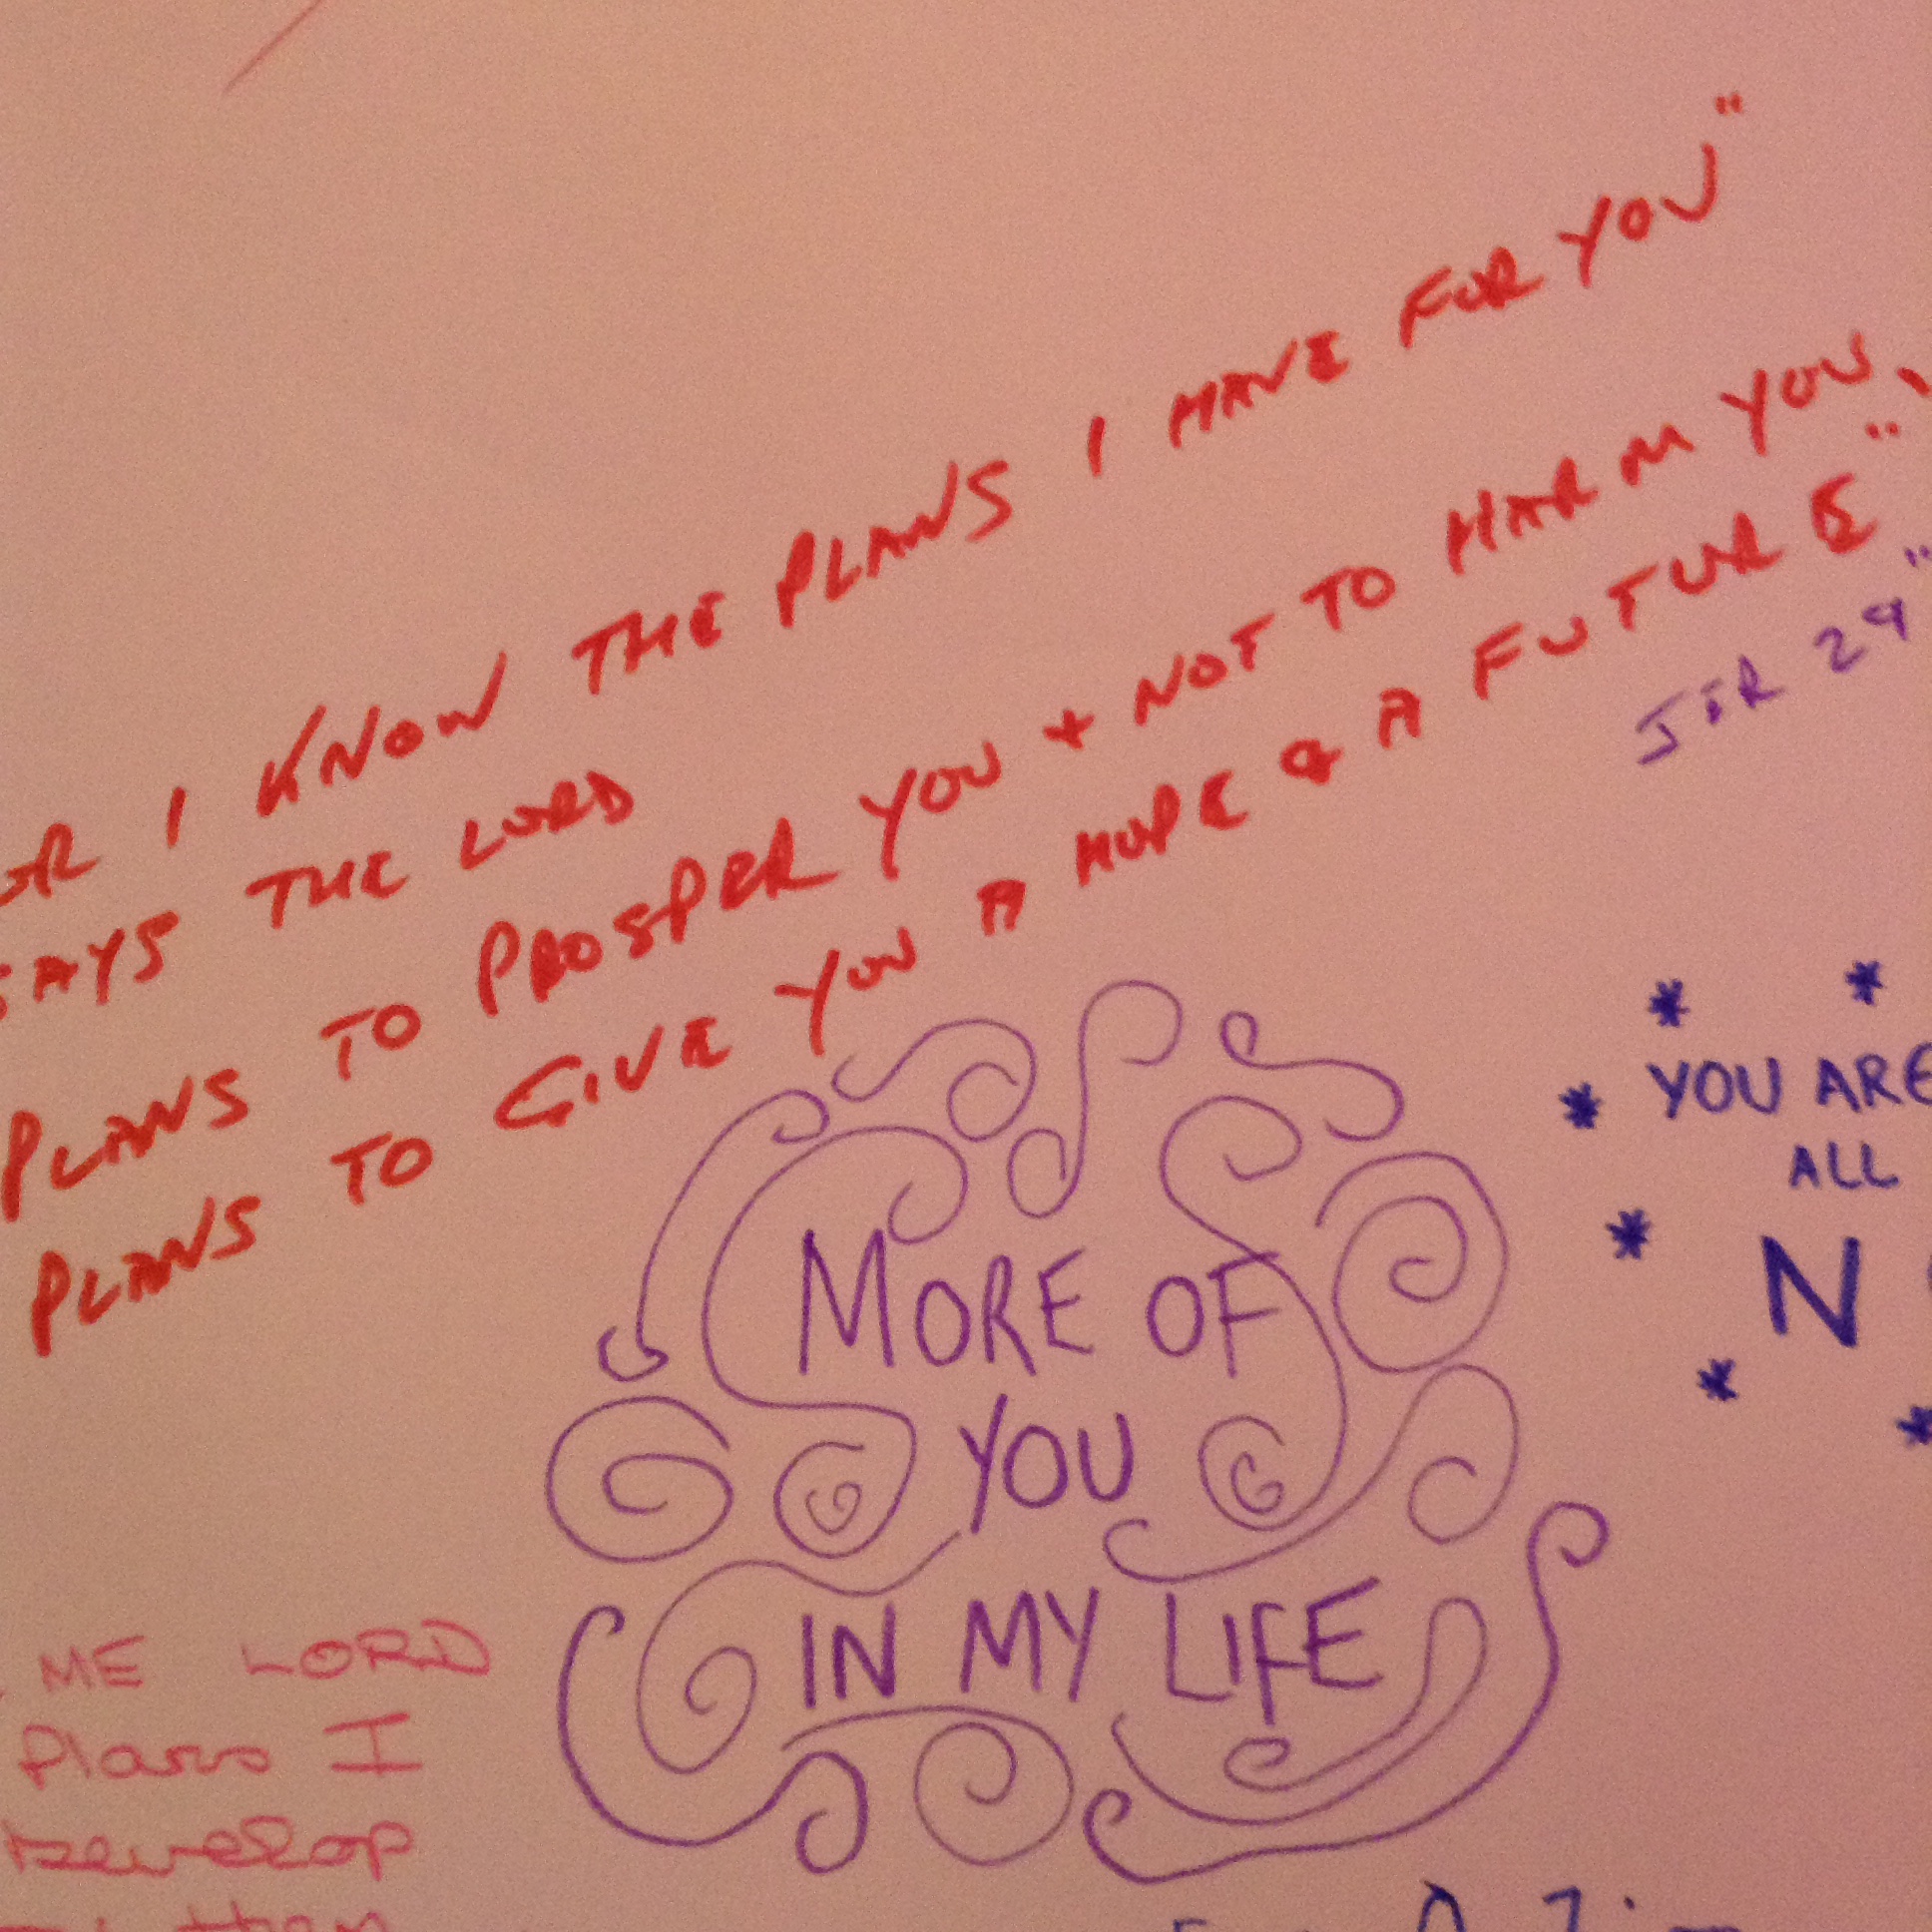 OR I KNOW THE PLANS I HAVE FOR YOU"
SAYS THE LORD
PLANS TO PROSPER YOU + NOT TO HARM YOU,
PLANS TO GIVE YOU A HOPE & A FUTURE"
JER 29"
MORE OF
YOU
IN MY LIFE
YOU ARE
ALL
N
ME LORD
Plans I
Develop
them